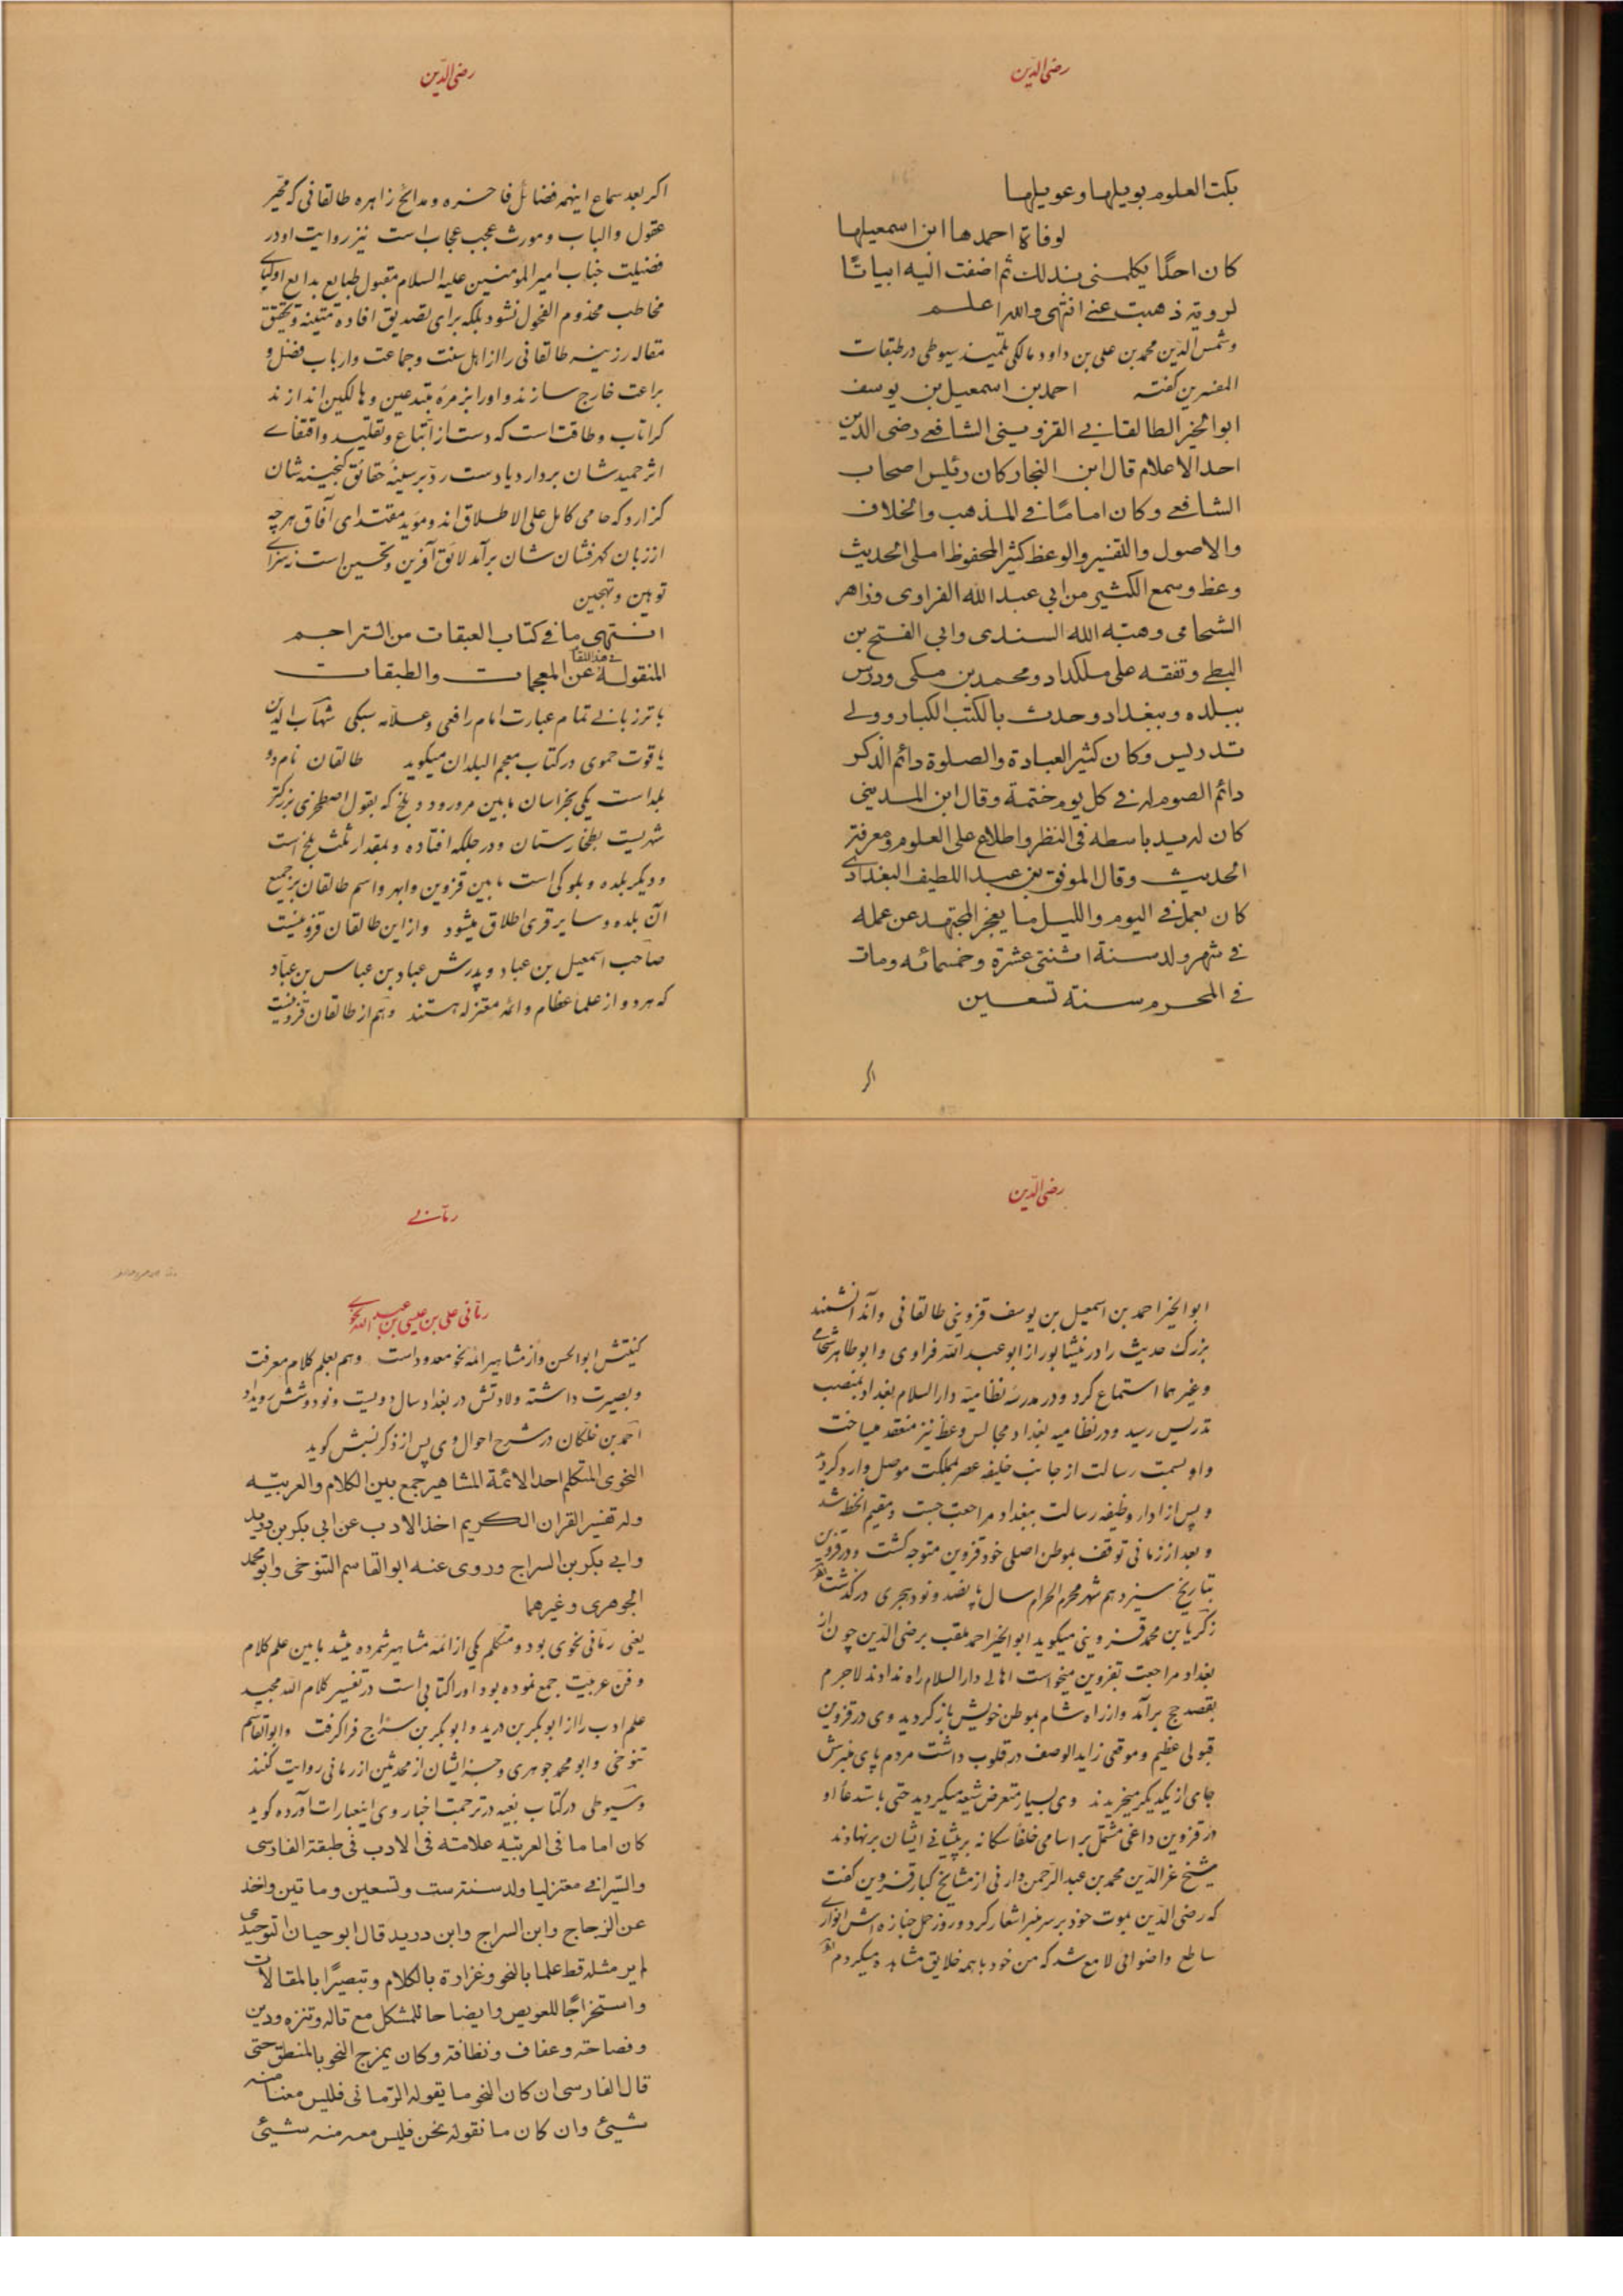 رضی الدّین
بکت العلوم بویلها وعویلها
لوفاة احمدها ابن اسمعیلها
کان احدًا یکلمنی بذلك ثم اضفت الیه ابیاتًا
لرویه ذهبت عنی انتهی والله اعلم
وشمس الدّین محمد بن علی بن داود مالکی تلمیذ سیوطی در طبقات
المفسرین گفته احمد بن اسمعیل بن یوسف
ابوالخیر الطالقانی القزوینی الشافعی رضی الدین
احد الاعلام قال ابن النجار کان رئیس اصحاب
الشافعی وکان امامًا فی المذهب والخلاف
والاصول والتفسیر والوعظ کثیر المحفوظ املی الحدیث
وعظ وسمع الکثیر من ابی عبدالله الفراوی وزاهر
الشحامی وهبة الله السندی وابی الفتح بن
البطی وتفقه علی ملکداد ومحمد بن مکی ودرس
ببلده وببغداد وحدث بالکتب الکبار وولی
تدریس وکان کثیر العبادة والصلوة دائم الذکر
دائم الصوم له فی کل یوم ختمة وقال ابن المدینی
کان له ید باسطه فی النظر واطلاع علی العلوم ومعرفة
الحدیث وقال الموفق بن عبد اللطیف البغدادی
کان یعمل فی الیوم واللیل ما یعجز المجتهد عن عمله
فی شهر ولد سنة اثنتی عشرة وخمسمائه ومات
فی المحرم سنة تسعین
اکر
رضی الدّین
اکر بعد سماع اینهمه فضائل فاخره ومدائح زاهره طالقانی که محیر
عقول والباب ومورث عجب عجاب است نیز روایت او در
فضیلت جناب امیرالمومنین علیه السلام مقبول طبایع بدایع اولیای
مخاطب مخدوم الفحول نشود بلکه برای تصدیق افاده متینه وتحقق
مقاله رزینه طالقانی را از اهل سنت وجماعت وارباب فضل و
براعت خارج سازند واورا بزمره مبتدعین وهالکین اندازند
کراتاب وطاقت است که دست از اتباع وتقلید واقتفای
اثر حمیدشان بردارد یا دست ردّ بر سینهٔ حقائق کنجینه شان
گزارد که حامی کامل علی الاطلاق اند وموید مقتدای آفاق هرچه
از زبان گهرفشان شان برآمد لائق آفرین وتحسین است نه سزای
توهین وتهجین
انتهی ما فی کتاب العبقات من التراجم
فی هذا المقام
المنقولة عن المعجمات والطبقات
با ترزبانی تمام عبارت امام رافعی وعلامه سبکی شهاب الدین
یاقوت حموی در کتاب معجم البلدان میکوید طالقان نام دو
بلد است یکی بخراسان مابین مرورود وبلخ که بقول اصطخری بزرکتر
شهریست بطخارستان ودر جلکه افتاده وبمقدار ثلث بلخ است
ودیکر بلده وبلوکی است مابین قزوین وابهر واسم طالقان بر جمیع
آن بلده وسایر قری اطلاق میشود وازاین طالقان قزوینست
صاحب اسمعیل بن عباد وپدرش عباد بن عباس بن عباد
که هر دو از علماء عظام وائمه معتزله هستند وهم از طالقان قزوینست
رضی الدّین
ابوالخیر احمد بن اسمعیل بن یوسف قزوینی طالقانی وآن دانشمند
بزرک حدیث را در نیشابور از ابوعبدالله فراوی وابوطاهر شحامی
وغیرهما استماع کرد ودر مدرسه نظامیه دارالسلام بغداد بمنصب
تدریس رسید ودر نظامیه بغداد مجالس وعظ نیز منعقد میساخت
واو بسمت رسالت از جانب خلیفه عصر بمملکت موصل وارد کردید
وپس از اداء وظیفه رسالت ببغداد مراجعت جست ومقیم آنخطه شد
وبعد از زمانی توقف بموطن اصلی خود قزوین متوجه کشت ودر قزوین
بتاریخ سیزدهم شهر محرم الحرام سال پانصد ونود هجری درکذشت
زکریا بن محمد قزوینی میکوید ابوالخیر احمد ملقب برضی الدّین چون از
بغداد مراجعت بقزوین میخواست اهالی دارالسلام راه ندادند لاجرم
بقصد حج برآمد واز راه شام بموطن خویش باز کردید وی در قزوین
قبولی عظیم وموقعی زاید الوصف در قلوب داشت مردم پای منبرش
جای از یکدیکر میخریدند وی بسیار متعرض شیعه میکردید حتی باستدعاء او
در قزوین داغی مشتمل بر اسامی خلفا سکانه بر پیشانی ایشان بر نهادند
شیخ عزالدّین محمد بن عبدالرحمن وارنی از مشایخ کبار قزوین کفت
که رضی الدّین بموت خود بر سر منبر اشعار کرد وروز حمل جنازه اش انواری
ساطع واضوائی لامع شد که من خود با همه خلایق مشاهده میکردم
رمّانی
رمّانی علی بن عیسی بن عبدالله نحوی
کنیتش ابوالحسن واز مشاهیر ائمه نحو معدود است وهم بعلم کلام معرفت
وبصیرت داشته ولادتش در بغداد سال دویست ونود وشش رویداد
احمد بن خلکان در شرح احوال وی پس از ذکر نسبش کوید
النحوی المتکلم احد الائمة المشاهیر جمع بین الکلام والعربیّه
وله تفسیر القران الکریم اخذ الادب عن ابی بکر بن درید
وابی بکر بن السراج وروی عنه ابوالقاسم التنوخی وابومحمد
الجوهری وغیرهما
یعنی رمّانی نحوی بود ومتکلم یکی از ائمه مشاهیر شمرده میشد مابین علم کلام
وفن عربیت جمع نموده بود اورا کتابی است در تفسیر کلام الله مجید
علم ادب را از ابوبکر بن درید وابوبکر بن سراج فرا کرفت وابوالقاسم
تنوخی وابومحمد جوهری وجز ایشان از محدثین از رمانی روایت کنند
وسیوطی در کتاب بغیه در ترجمت اخبار وی اینعبارات آورده کوید
کان اماما فی العربیّه علامته فی الادب فی طبقة الفارسی
والسّیرافی معتزلیا ولد سنة ست وتسعین وماتین واخذ
عن الزجاج وابن السراج وابن درید قال ابوحیان التوحیدی
لم یر مثله قط علما بالنحو وغزارة بالکلام وتبصیرًا بالمقالات
واستخراجًا للعویص وایضاحا للمشکل مع تاله وتنزه ودین
وفصاحة وعفاف ونظافة وکان یمزج النحو بالمنطق حتی
قال الفارسی ان کان النحو ما یقوله الرّمانی فلیس معنا منه
شیئ وان کان ما نقوله نحن فلیس معه منه شیئ